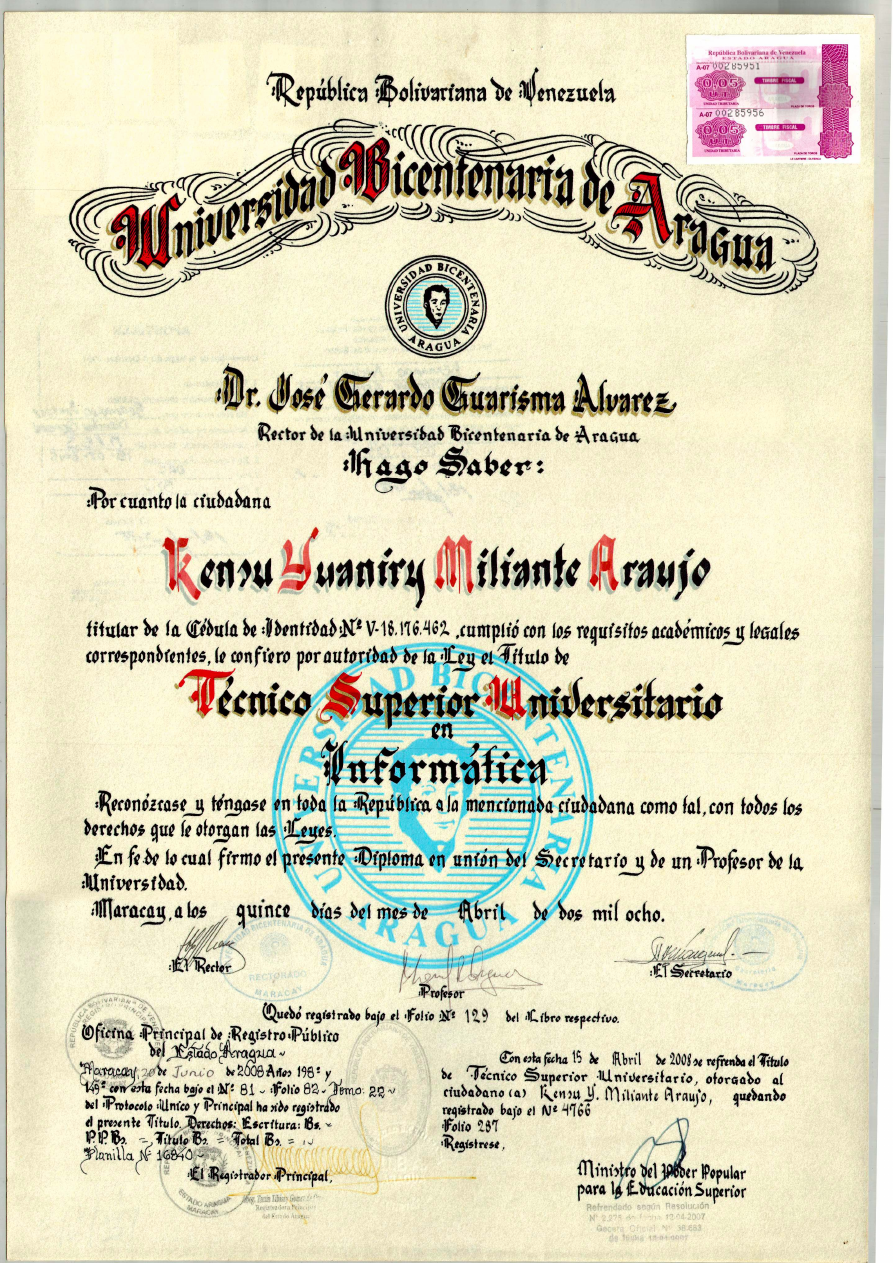 República Bolivariana de Venezuela
República Bolivariana de Venezuela
ESTADO ARAGUA
A-07 00285951
0,05
U.T.
UNIDAD TRIBUTARIA
TIMBRE FISCAL
A-07 00285956
0,05
U.T.
UNIDAD TRIBUTARIA
TIMBRE FISCAL
Universidad Bicentenaria de Aragua
UNIVERSIDAD BICENTENARIA ARAGUA
Dr. José Gerardo Guarisma Alvarez
Rector de la Universidad Bicentenaria de Aragua
Hago Saber:
Por cuanto la ciudadana
Kensu Yuaniry Miliante Araujo
titular de la Cédula de Identidad Nº V-18.176.462 ,cumplió con los requisitos académicos y legales
correspondientes, le confiero por autoridad de la Ley el Título de
Técnico Superior Universitario
en
Informática
UNIVERSIDAD BICENTENARIA ARAGUA
Reconózcase y téngase en toda la República a la mencionada ciudadana como tal, con todos los
derechos que le otorgan las Leyes.
En fe de lo cual firmo el presente Diploma en unión del Secretario y de un Profesor de la
Universidad.
Maracay, a los quince días del mes de Abril de dos mil ocho.
El Rector
RECTORADO
MARACAY
Profesor
El Secretario
Quedó registrado bajo el Folio Nº 129 del Libro respectivo.
Oficina Principal de Registro Público
del Estado Aragua
Maracay, 20 de Junio de 2008 Años 198º y
149º con esta fecha bajo el Nº 81 Folio 82 Tomo: 22
del Protocolo Unico y Principal ha sido registrado
el presente Título. Derechos: Escritura: Bs.
P.P. Bs. = Título Bs. = Total Bs. =
Planilla Nº 16840
El Registrador Principal,
Con esta fecha 15 de Abril de 2008 se refrenda el Título
de Técnico Superior Universitario, otorgado al
ciudadano (a) Kensu Y. Miliante Araujo, quedando
registrado bajo el Nº 4766
Folio 287
Regístrese,
Ministro del Poder Popular
para la Educación Superior
Refrendado según Resolución